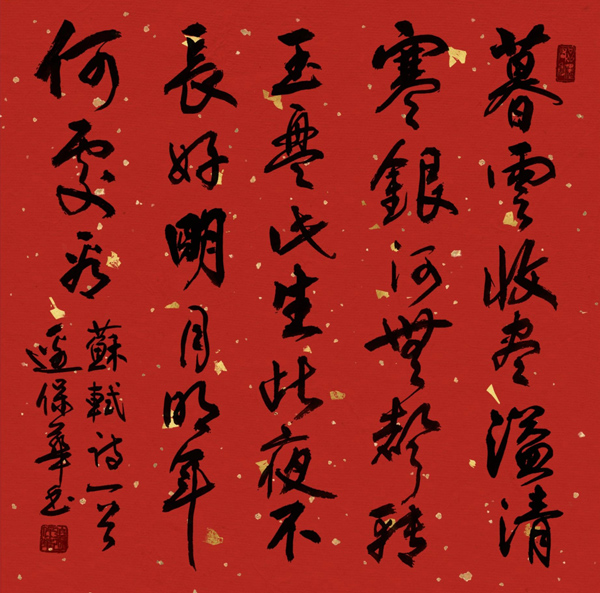 暮雲收尽溢清
寒銀河無聲轉
玉盤此生此夜不
長好明月明年
何處看
蘇軾詩一首
保華书